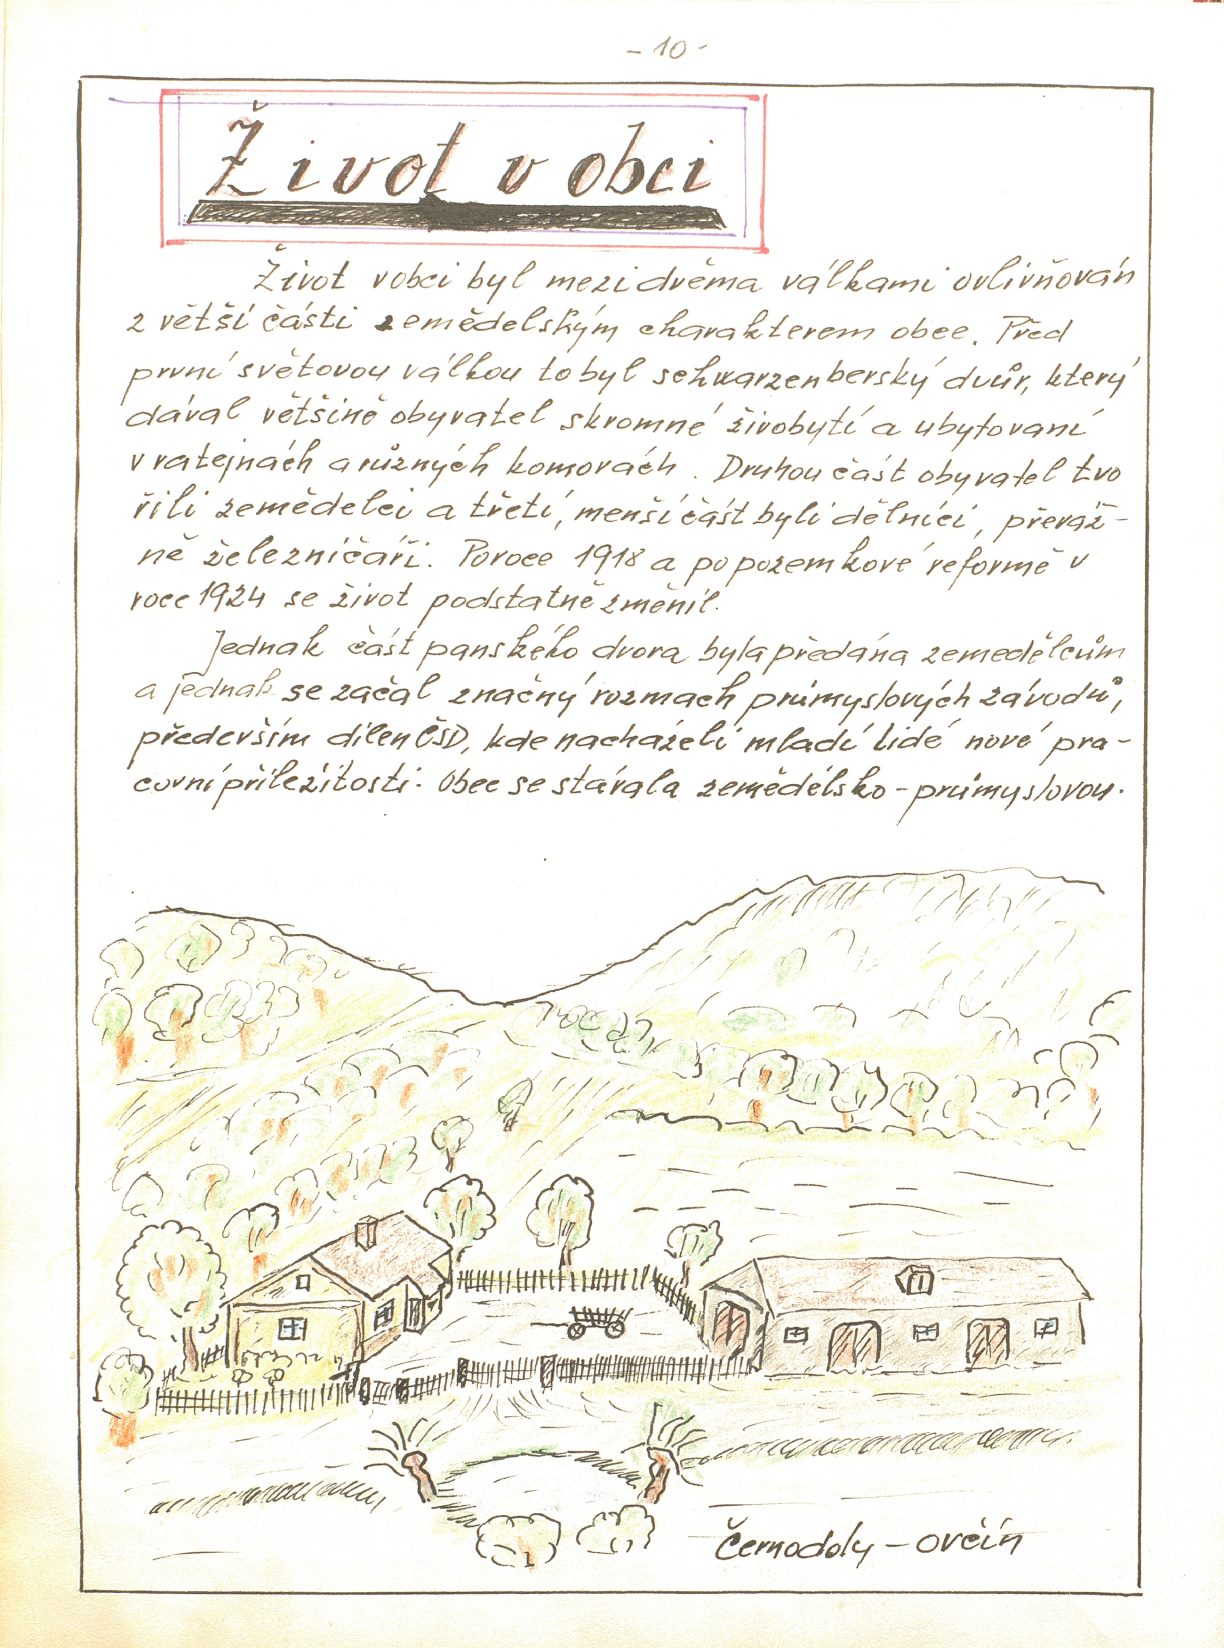 - 10 -
Život v obci
Život v obci byl mezi dvěma válkami ovlivňován
z větší části zemědělským charakterem obce. Před
první světovou válkou to byl schwarzenberský dvůr, který
dával většině obyvatel skromné živobytí a ubytovaní
v ratejnách a různých komorách. Druhou část obyvatel tvo
řili zemědelci a třetí, menší část byli dělníci, převáž-
ně železničáři. Po roce 1918 a po pozemkové reformě v
roce 1924 se život podstatně změnil.
Jednak část panského dvora byla předána zemedělcům
a jednak se začal značný rozmach průmyslových závodů,
především dílen ČSD, kde nacházeli mladí lidé nové pra-
covní příležitosti. Obec se stávala zemědělsko-průmyslovou.
Černodoly - ovčín